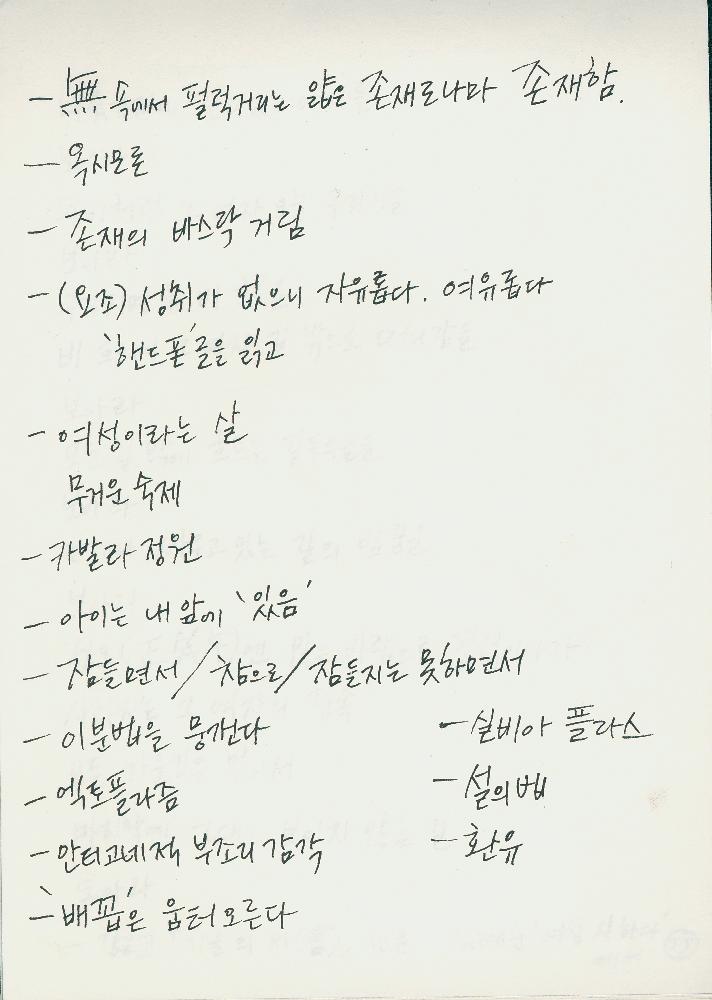 - 無 속에서 펄럭거리는 얇은 존재로나마 존재함.
- 옥시모론
- 존재의 바스락거림
- (요죠) 성취가 없으니 자유롭다. 여유롭다
'핸드폰' 글을 읽고
- 여성이라는 살
무거운 숙제
- 카발라 정원
- 아이는 내 앞에 '있음'
- 잠들면서/참으로/잠들지는 못하면서
- 이분법을 뭉갠다
- 엑토플라즘
- 안티고네적 부조리 감각
- '배꼽'은 웁터오른다
- 실비아 플라스
- 설의법
- 환유